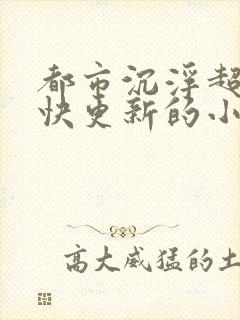 都市沉浮超
快更新的小
高大威猛的土